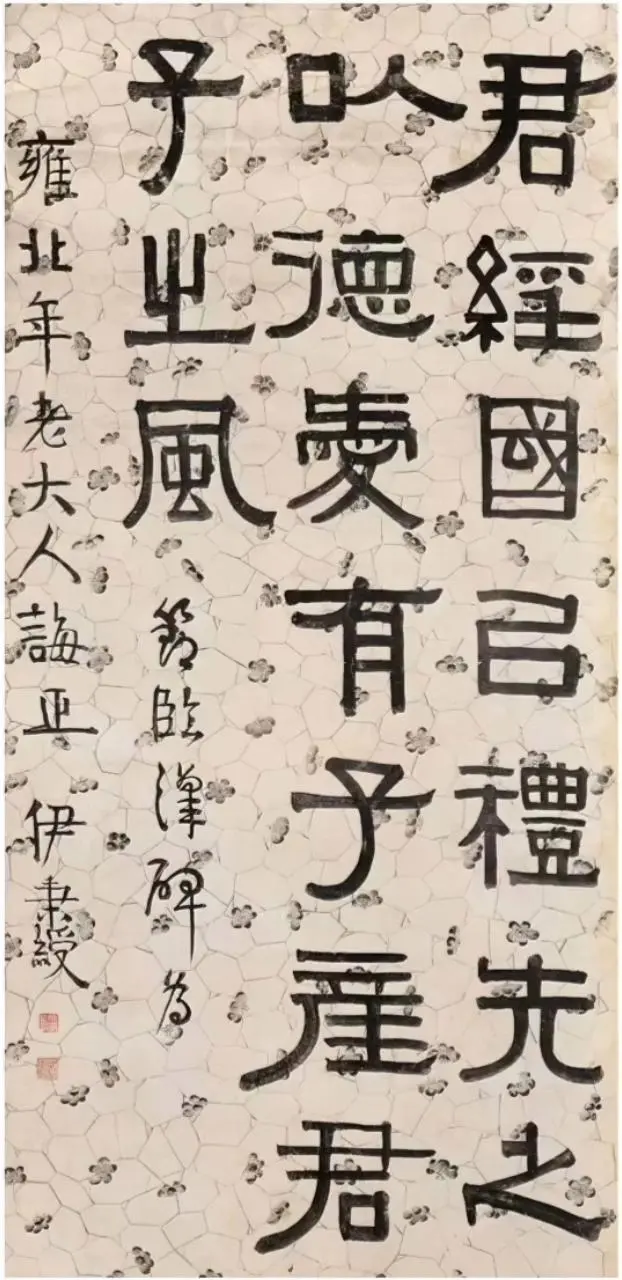 君經國㠯禮先之
㕥德愛有子產君
子之風
節臨漢碑為
雍北年老大人誨正 伊秉綬